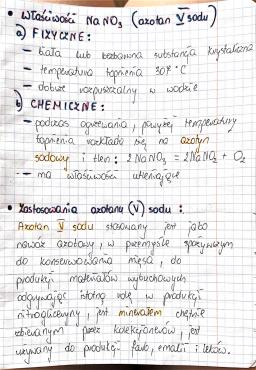 • Właściwości NaNO₃ (azotan V sodu)
a) FIZYCZNE:
– biała lub bezbarwna substancja krystaliczna
– temperatura topnienia 308°C
– dobrze rozpuszczalny w wodzie
b) CHEMICZNE:
– podczas ogrzewania, powyżej temperatury
topnienia rozkłada się na azotyn
sodowy i tlen: 2NaNO₃ = 2NaNO₂ + O₂
– ma właściwości utleniające
• Zastosowania azotanu (V) sodu:
Azotan V sodu stosowany jest jako
nawóz azotowy, w przemyśle spożywczym
do konserwowania mięsa, do
produkcji materiałów wybuchowych
odgrywając istotną rolę w produkcji
nitrogliceryny, jest minerałem chętnie
zbieranym przez kolekcjonerów, jest
używany do produkcji farb, emalii i leków.